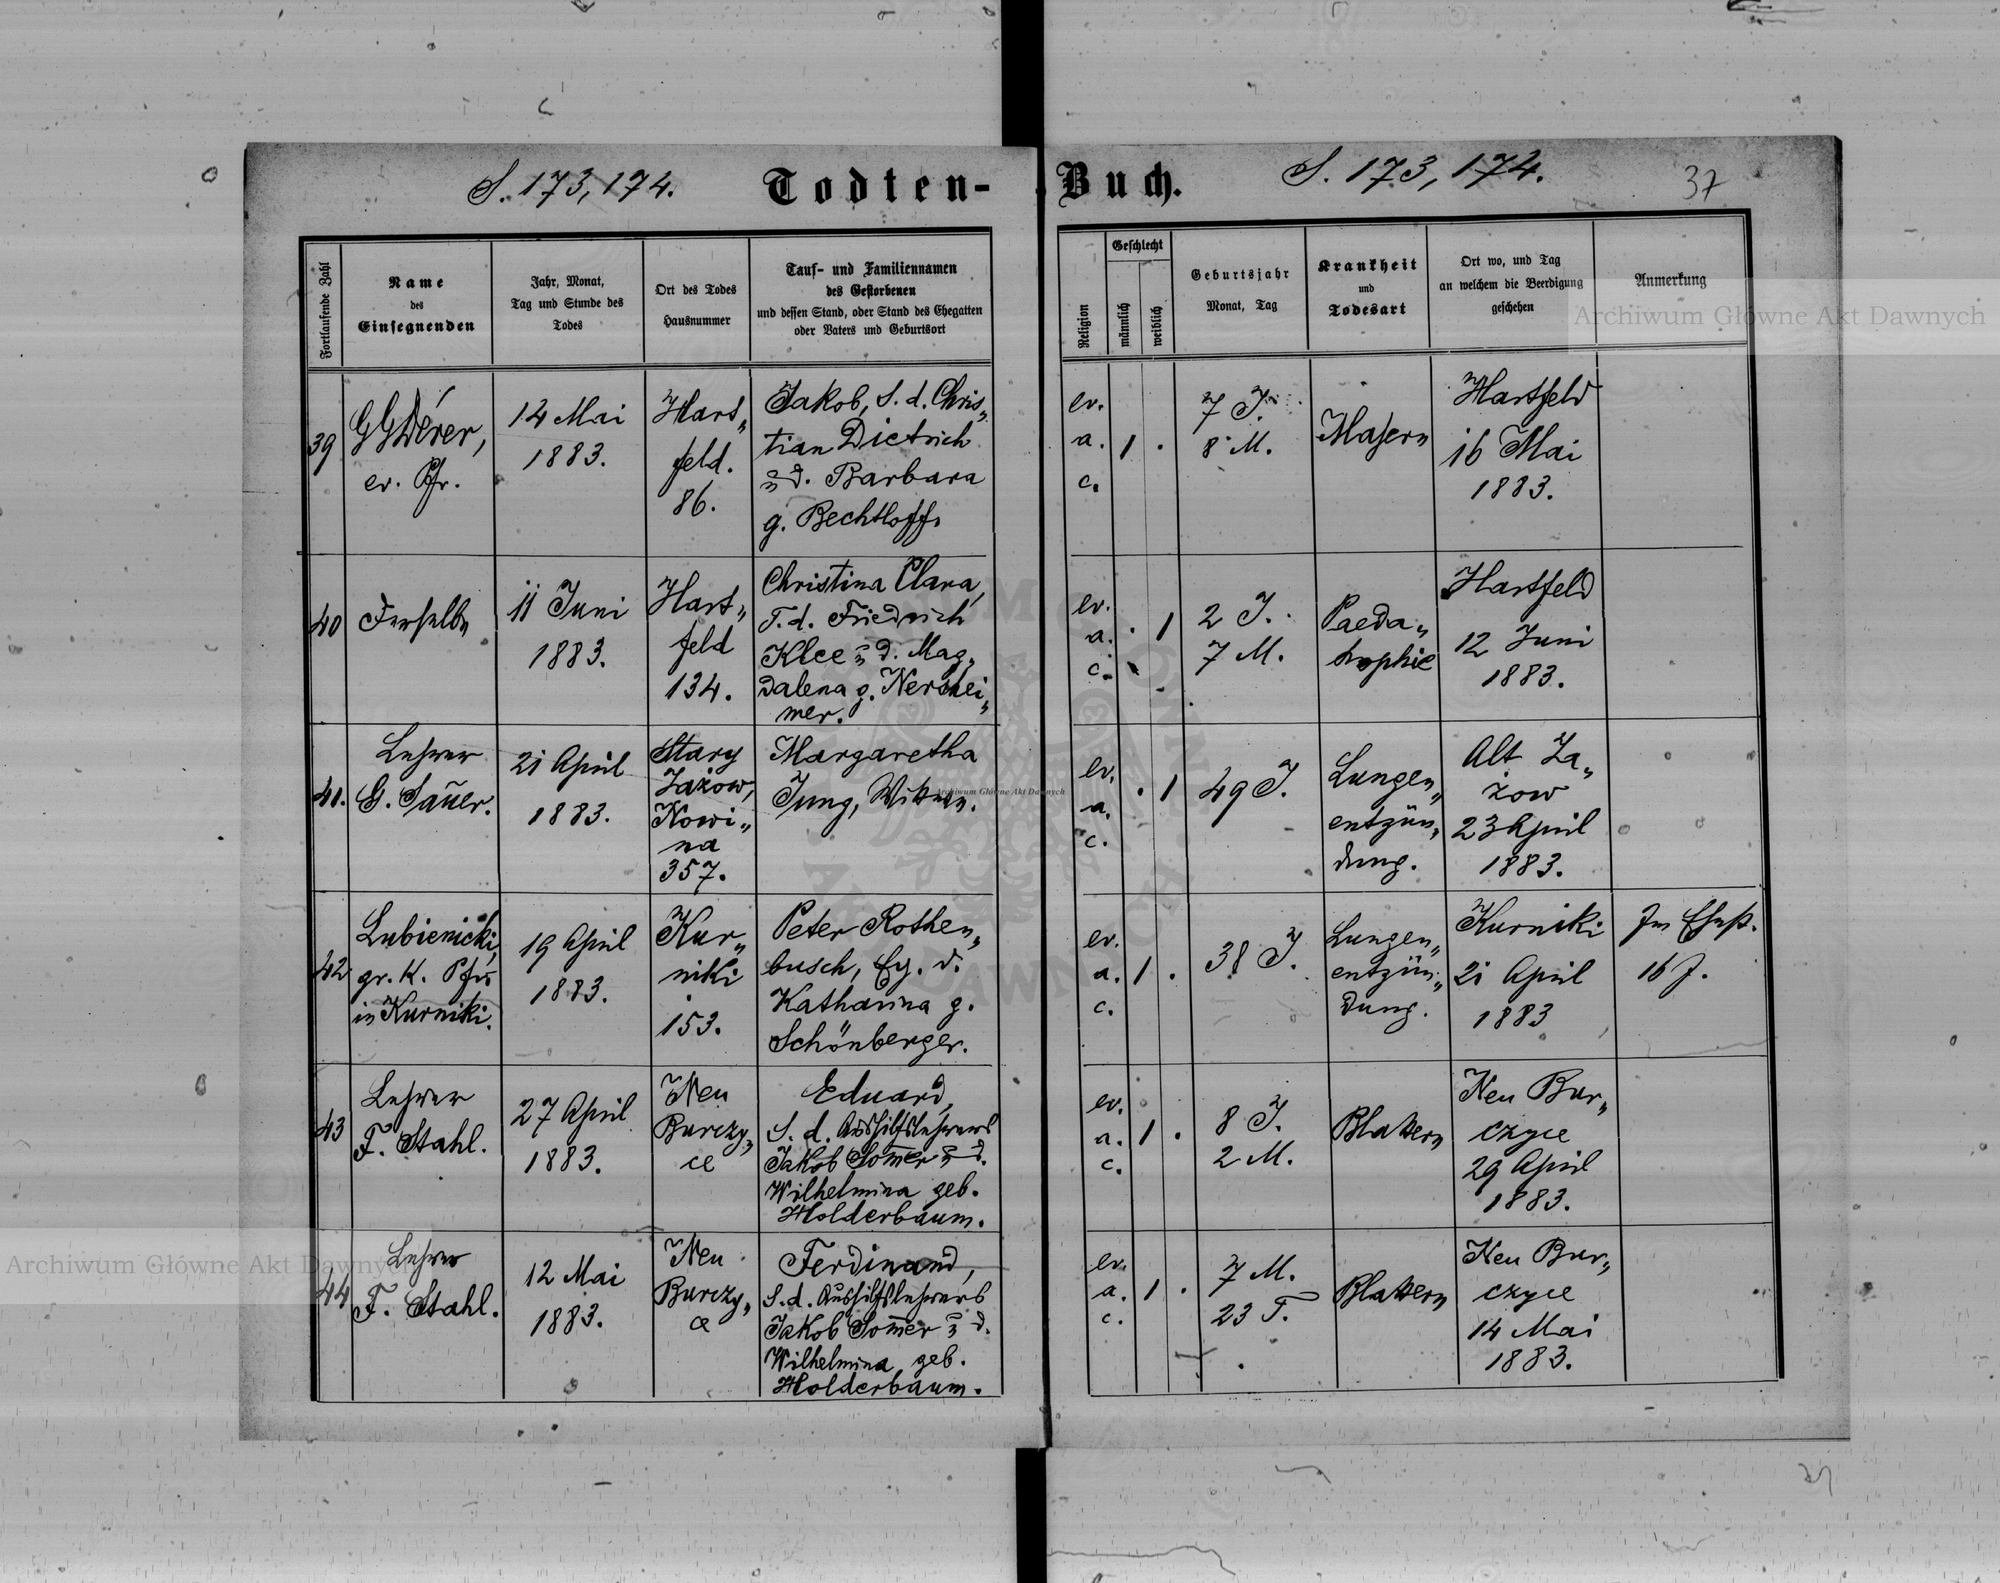 S. 173, 174.
Todten-
Buch.
S. 173, 174.
37
Fortlaufende Zahl
Name
des
Einsegnenden
Jahr, Monat,
Tag und Stunde des
Todes
Ort des Todes
Hausnummer
Tauf- und Familiennamen
des Gestorbenen
und dessen Stand, oder Stand des Ehegatten
oder Vaters und Geburtsort
Religion
Geschlecht
männlich
weiblich
Geburtsjahr
Monat, Tag
Krankheit
und
Todesart
Ort wo, und Tag
an welchem die Beerdigung
geschehen
Anmerkung
39
GGDérer,
ev. Pfr.
14 Mai
1883.
Hart„
feld.
86.
Jakob, S. d. Chris„
tian Dietrich
u d. Barbara
g. Bechtloff.
ev.
a.
c.
1 .
7 J.
8 M.
Masern
Hartfeld
16 Mai
1883.
40
Derselbe
11 Juni
1883.
Hart„
feld
134.
Christina Clara,
T. d. Friedrich
Klee u d. Mag„
dalena g. Nershei„
mer.
ev.
a.
c.
. 1
2 J.
7 M.
Paeda„
trophie
Hartfeld
12 Juni
1883.
41.
Lehrer
G. Sauer.
21 April
1883.
Stary
Zażow,
Nowi„
na
357.
Margaretha
Jung, Witwe.
ev.
a.
c.
. 1
49 J.
Lungen„
entzün„
dung.
Alt Za„
żow
23 April
1883.
42
Lubienicki,
gr. K. Pfr.
in Kurniki.
19 April
1883.
Kur„
niki
153.
Peter Rothen„
busch, Eg. d.
Katharina g.
Schönberger.
ev.
a.
c.
1 .
38 J.
Lungen„
entzün„
dung.
Kurniki
21 April
1883
Im Ehest.
16 J.
43
Lehrer
F. Stahl.
27 April
1883.
Neu
Burczy„
ce
Eduard,
S. d. Aushilfslehrers
Jakob Som̄er u d.
Wilhelmina geb.
Holderbaum.
ev.
a.
c.
1 .
8 J.
2 M.
Blattern
Neu Bur„
czyce
29 April
1883.
44
Lehrer
F. Stahl.
12 Mai
1883.
Neu
Burczy„
ce
Ferdinand,
S. d. Aushilfslehrers
Jakob Som̄er u d.
Wilhelmina geb.
Holderbaum.
ev.
a.
c.
1 .
7 M.
23 T.
Blattern
Neu Bur„
czyce
14 Mai
1883.
Archiwum Główne Akt Dawnych
Archiwum Główne Akt Dawnych
Archiwum Główne Akt Dawnych